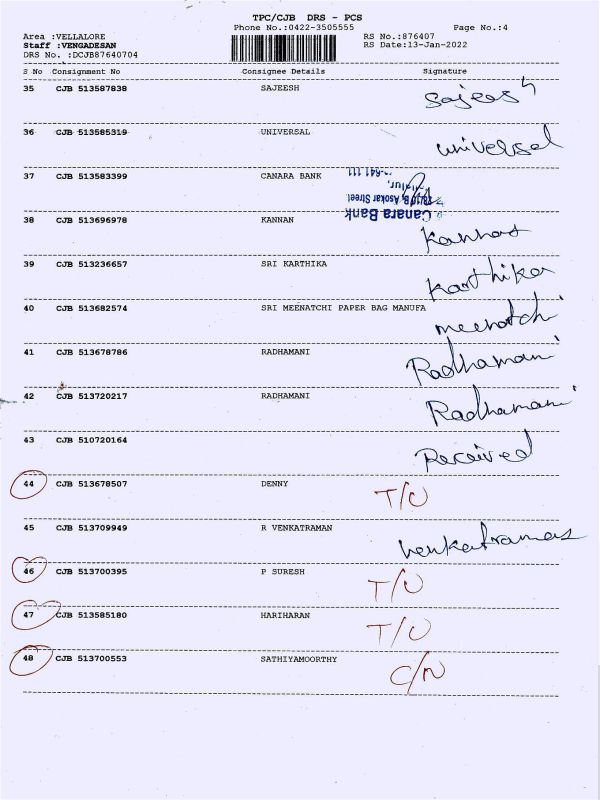 TPC/CJB DRS - PCS
Phone No.:0422-3505555 Page No.:4
Area :VELLALORE RS No.:876407
Staff :VENGADESAN RS Date:13-Jan-2022
DRS No. :DCJB87640704
S No Consignment No Consignee Details Signature
35 CJB 513587838 SAJEESH Sajees
36 CJB 513585319 UNIVERSAL universal
37 CJB 513583399 CANARA BANK
Canara Bank
Asokar Street
641 111
38 CJB 513696978 KANNAN Kannan
39 CJB 513236657 SRI KARTHIKA Karthika
40 CJB 513682574 SRI MEENATCHI PAPER BAG MANUFA meenatchi
41 CJB 513678786 RADHAMANI Radhamani
42 CJB 513720217 RADHAMANI Radhamani
43 CJB 510720164 Received
44 CJB 513678507 DENNY T/U
45 CJB 513709949 R VENKATRAMAN Venkatraman
46 CJB 513700395 P SURESH T/U
47 CJB 513585180 HARIHARAN T/U
48 CJB 513700553 SATHIYAMOORTHY C/N